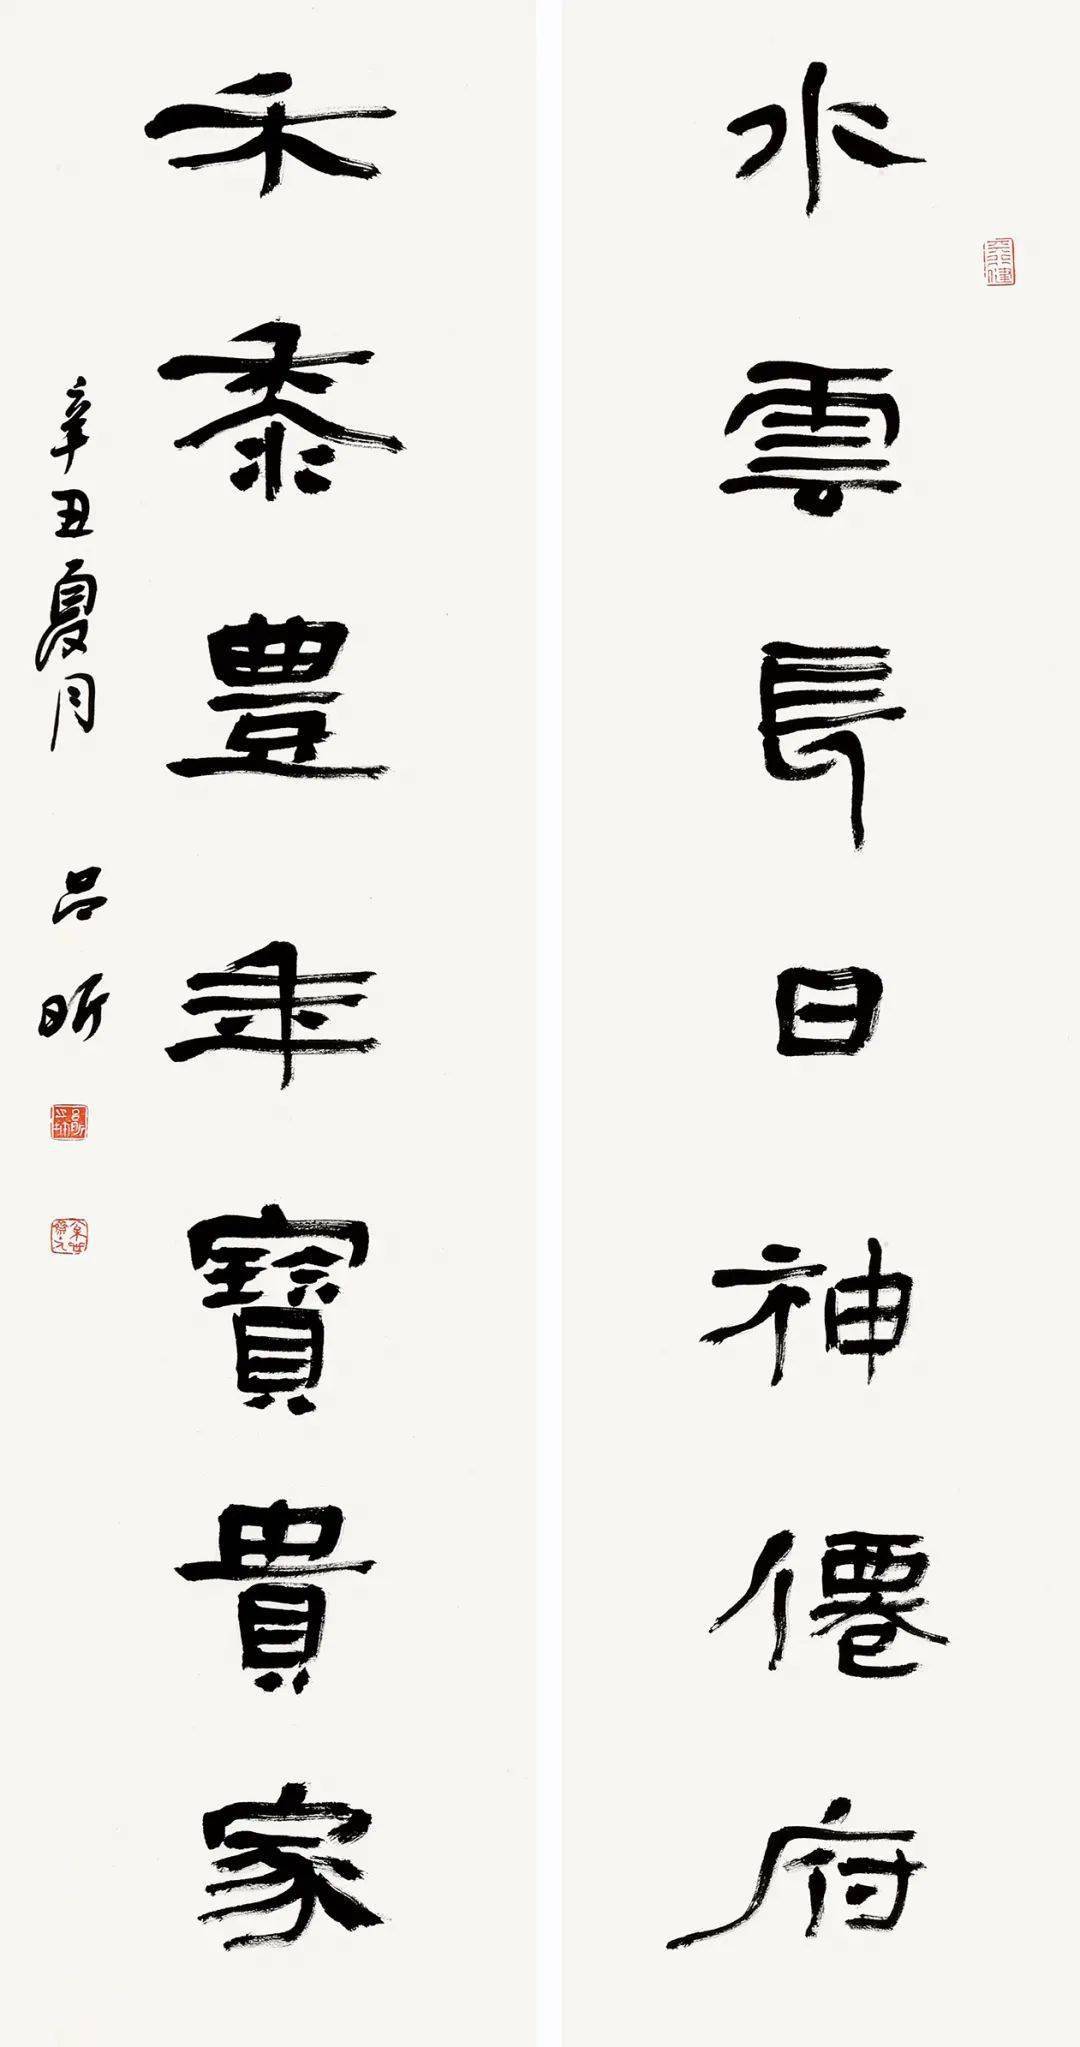 水雲長日神僊府
禾黍豊年寶貴家
辛丑夏月 吕昕